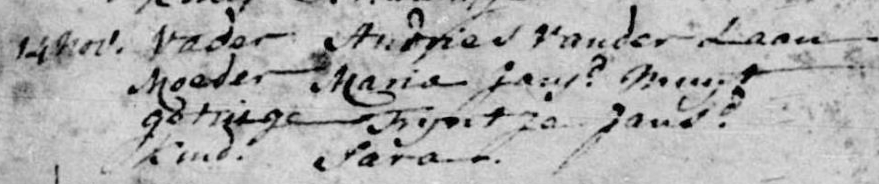 14 Nov. Vader Andries Vander Laan
Moeder Maria Jans. Muyt
getuige Tryntje Jans.
Kind. Sara.